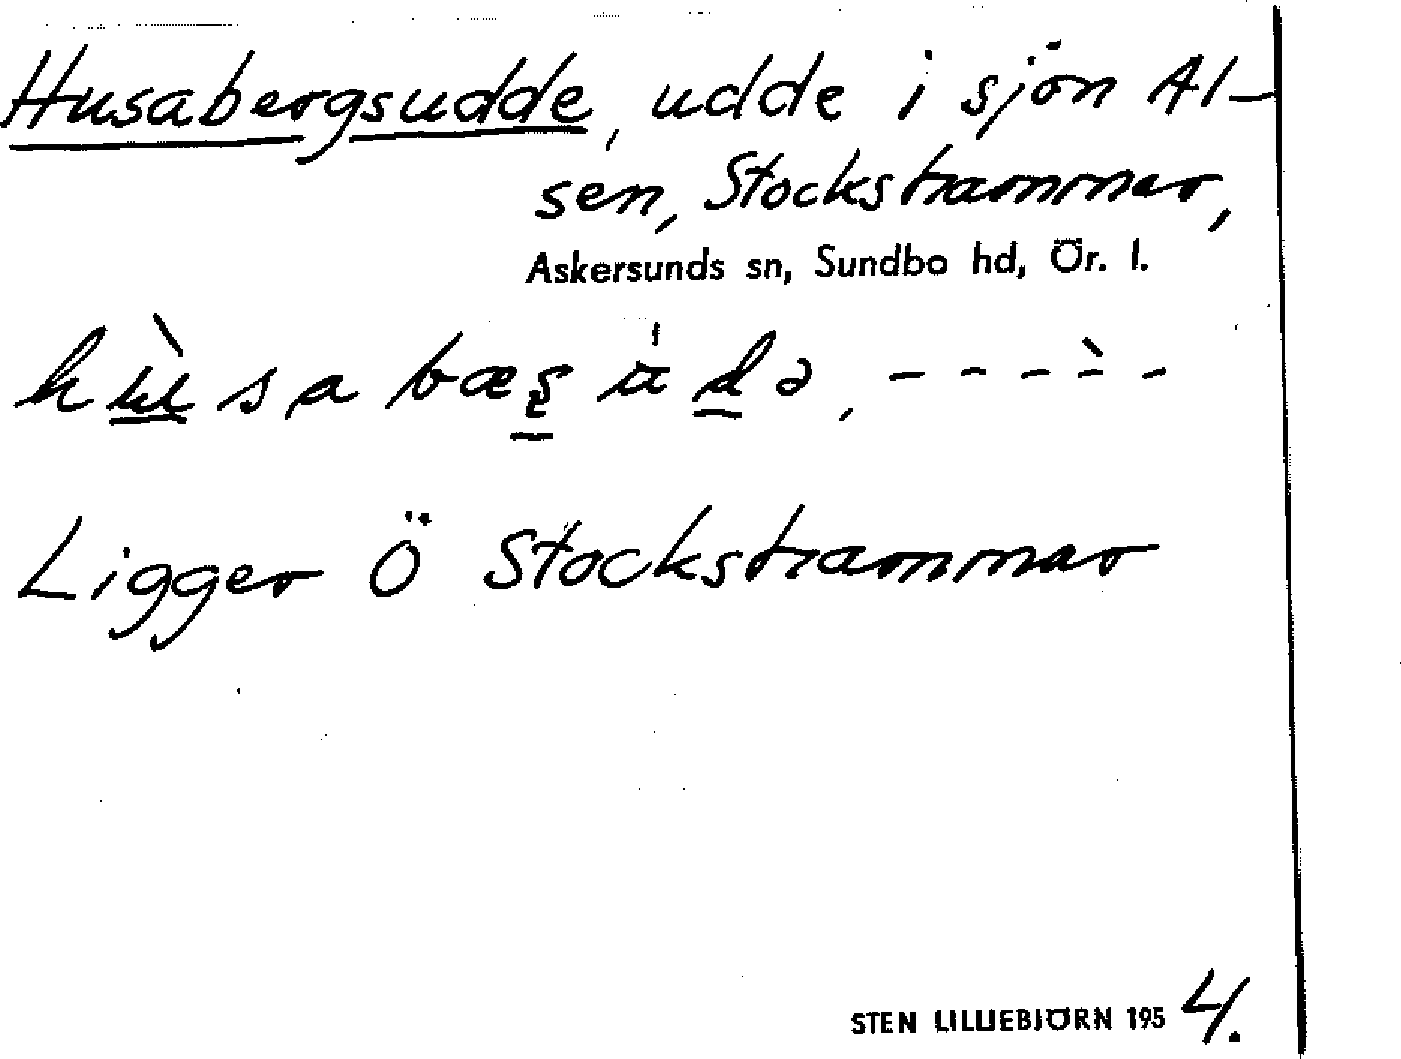 Husabergsudde, udde i sjön Al-
sen, Stockshammar,
Askersunds sn, Sundbo hd, Ör. l.
Ligger Ö Stockshammar
STEN LILLIEBJÖRN 1954.